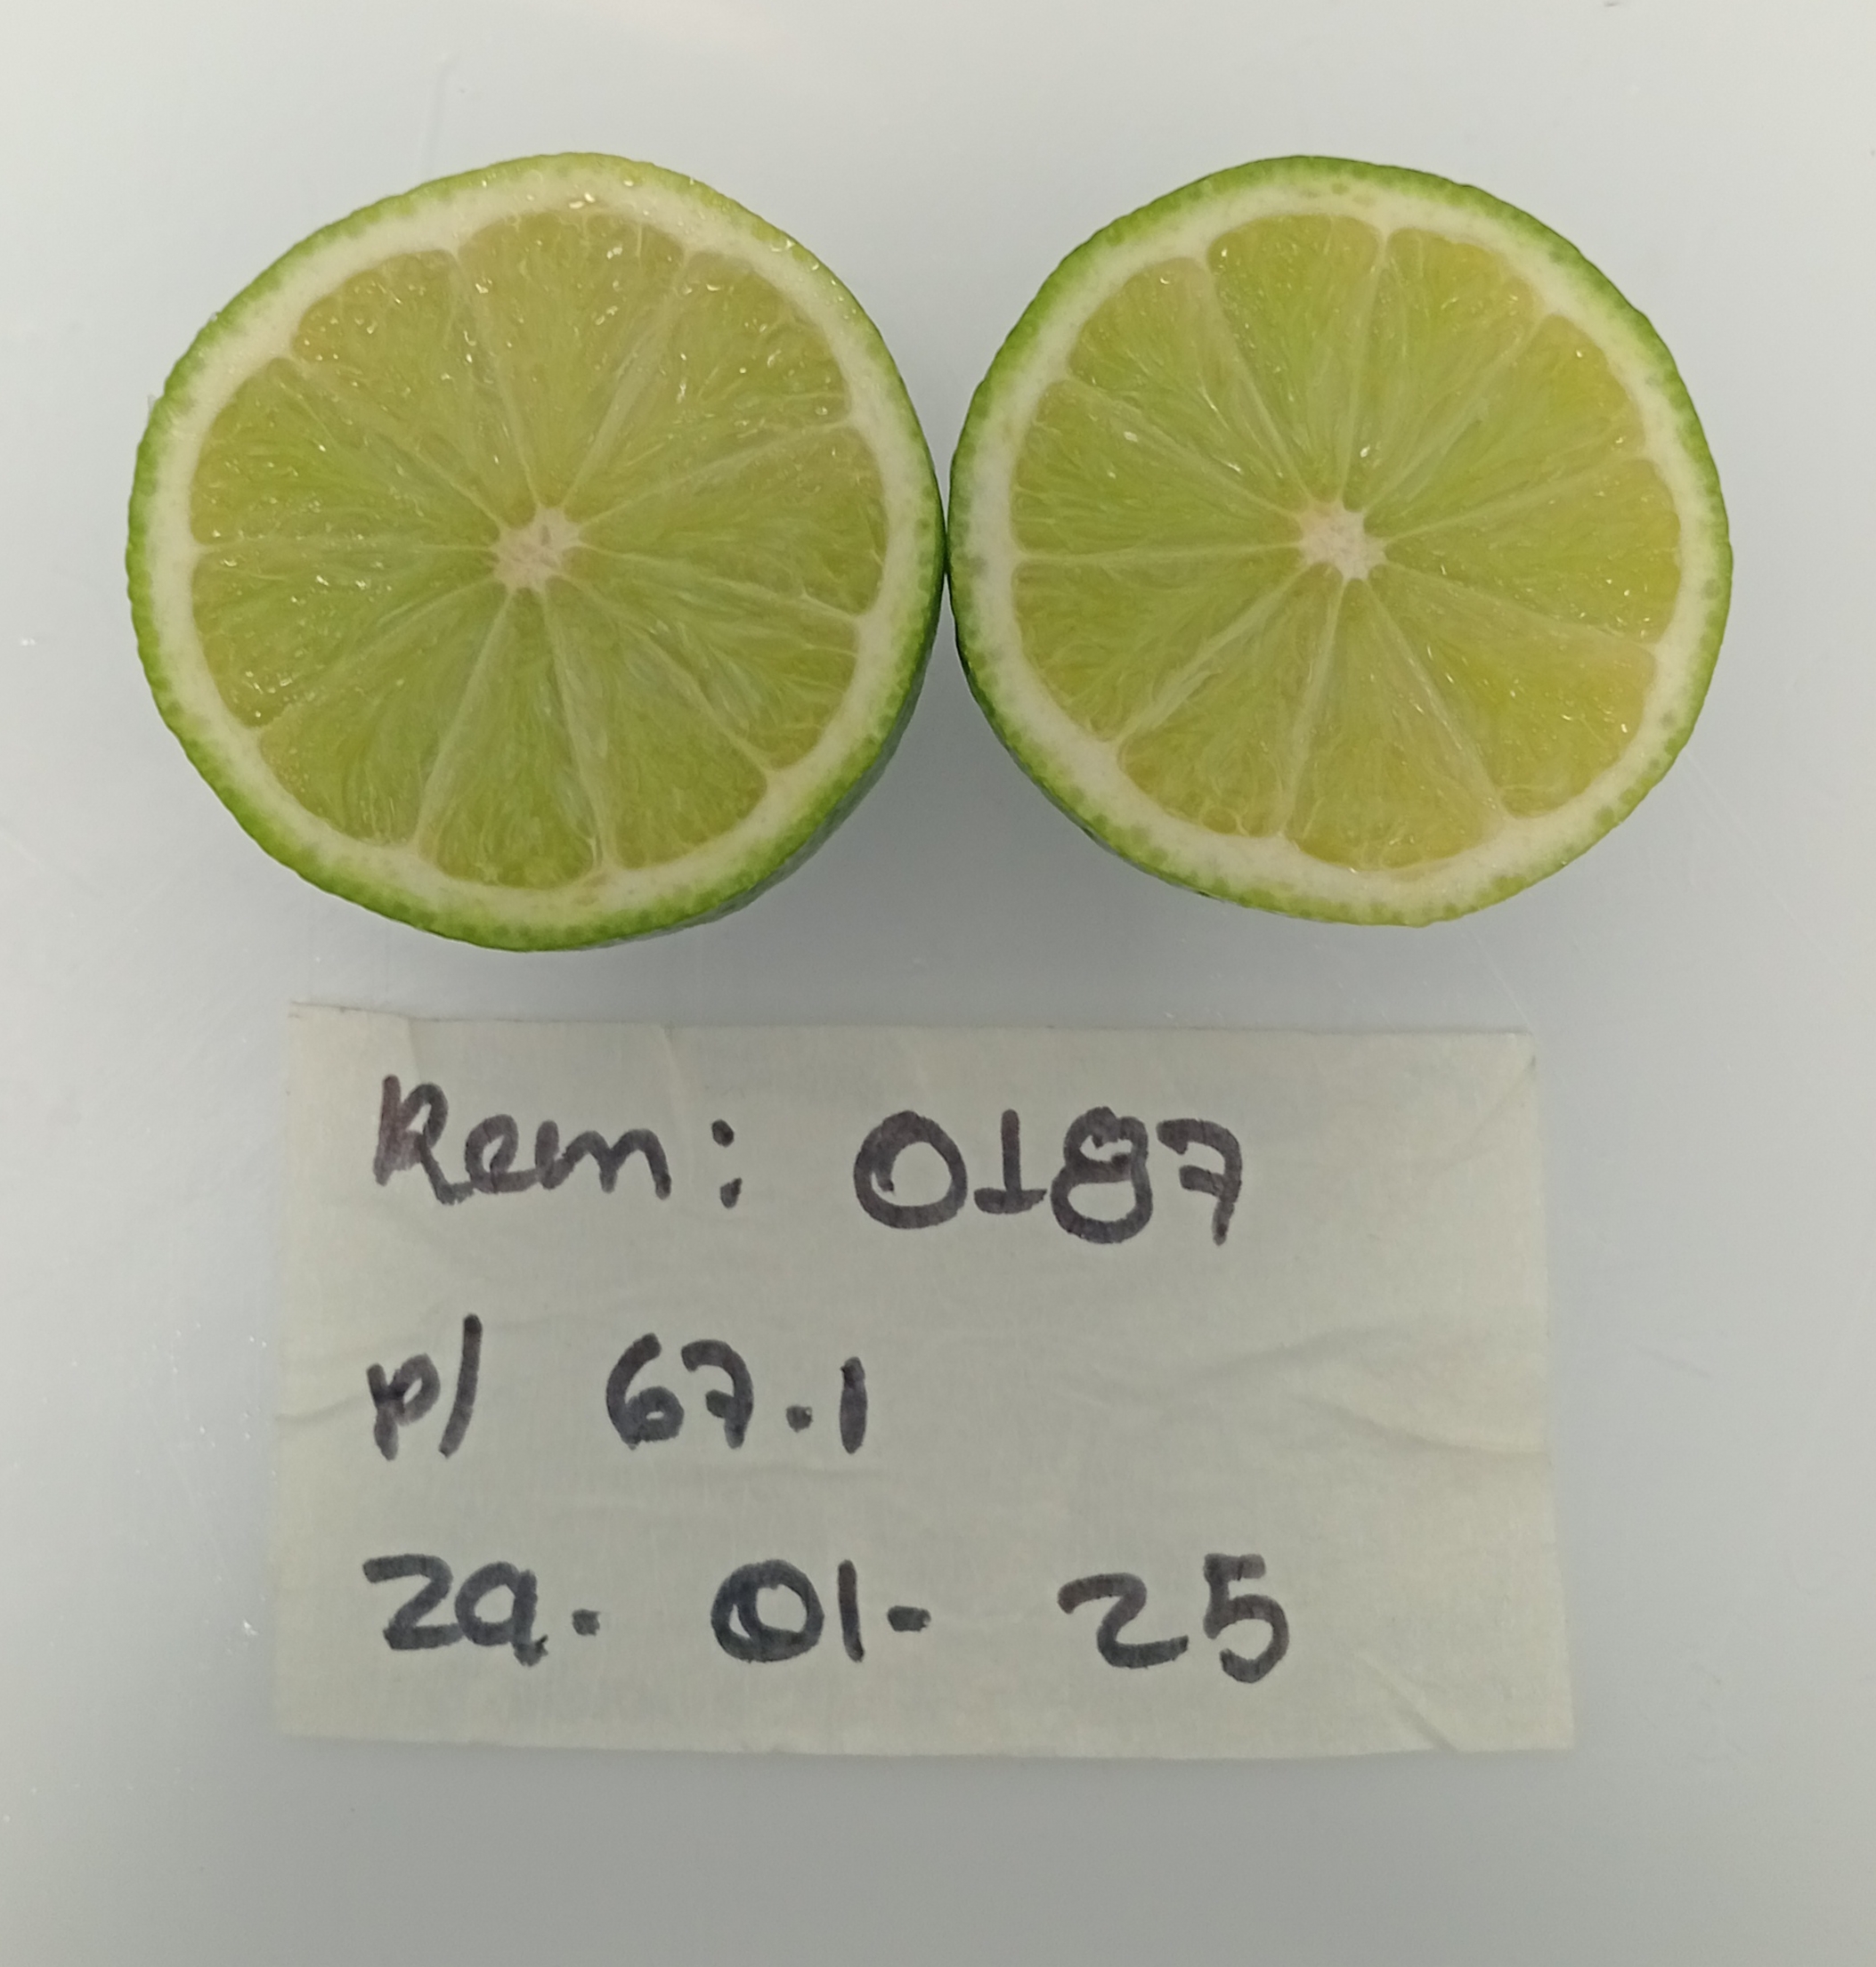 Rem: 0187
p/ 67.1
29. 01- 25